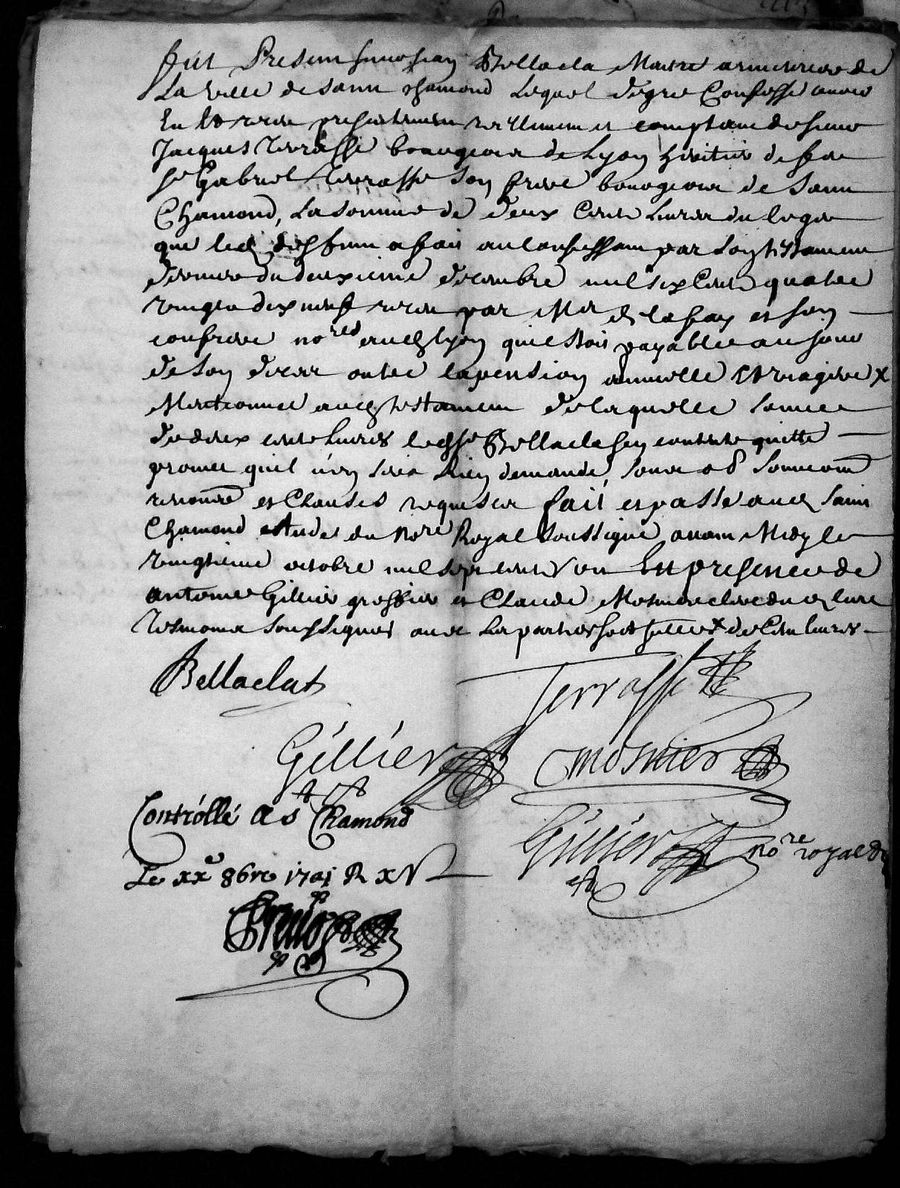 fut Present sieur Jean Bellaclat Maitre armurier de
La ville de saint chamond Lequel degré Confesse avoir
Eu et receu presentement reellement et comptant de sieur
Jacques Terrasse bourgeois de Lyon heritier de feu
sr Gabriel Terrasse son frere bourgeois de saint
Chamond, La somme de deux Cents Livres du legat
que led deffunt a fait au confessant par son testament
dernier du deuxieme decembre mil six Cents quatre
vingts dix neuf receu par Me et son
confrere nores aud Lyon qui estoit payable au jour
de son deces outre la pension annuelle et viagere
Mentionnee aud testament de laquelle somme
de deux cents Livres led sr Bellaclat s'en contente quitte
promet qu'il n'en sera Rien demandé,
renoncé et Clauses requises fait et passé aud saint
Chamond estude du nore Royal soussigné, avant Midy le
vingtieme octobre mil sept cents un En presence de
antoine Gillier greffier et Claude Mosnier clerc dud lieu
Tesmoins soussignés avec Les parties
Bellaclat
Terrasse
Gillier
mosnier
Controllé a st Chamond
Gillier nore royal
Le xxe 8bre 1701 R